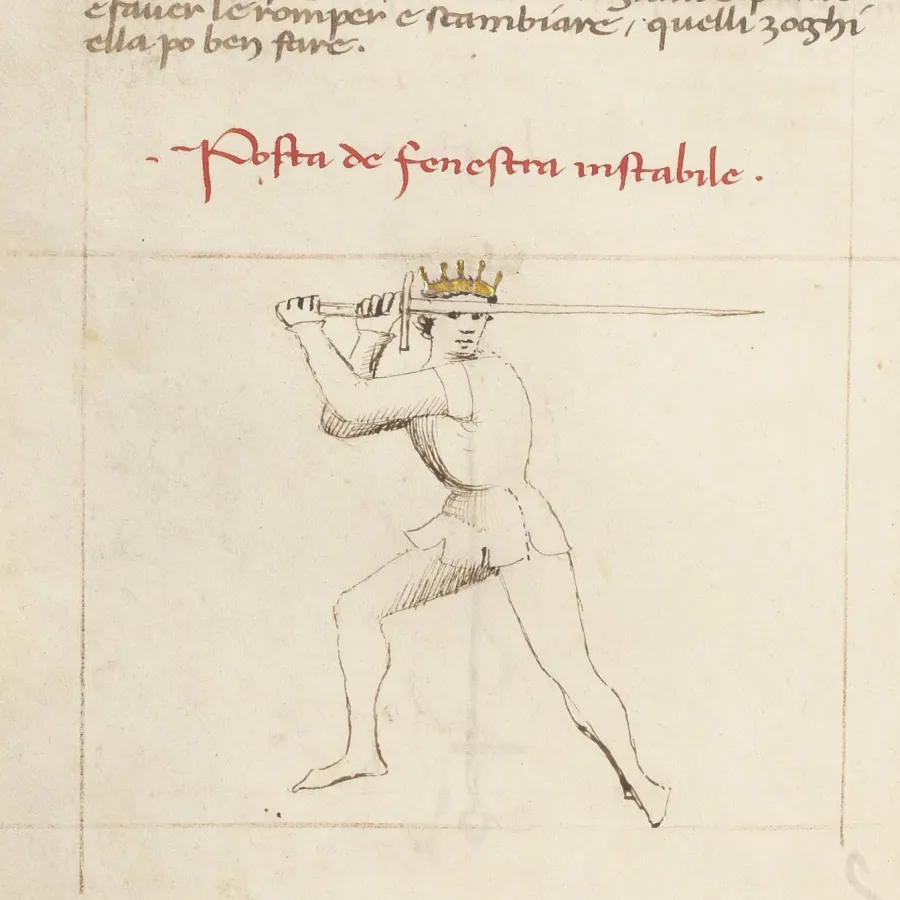 e saver le romper e scambiare, quelli zoghi
ella po ben fare.
· Posta de fenestra instabile ·